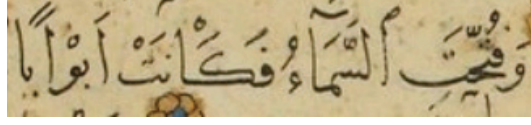 وَفُتِحَتِ ٱلسَّمَآءُ فَكَانَتْ أَبْوَابًا